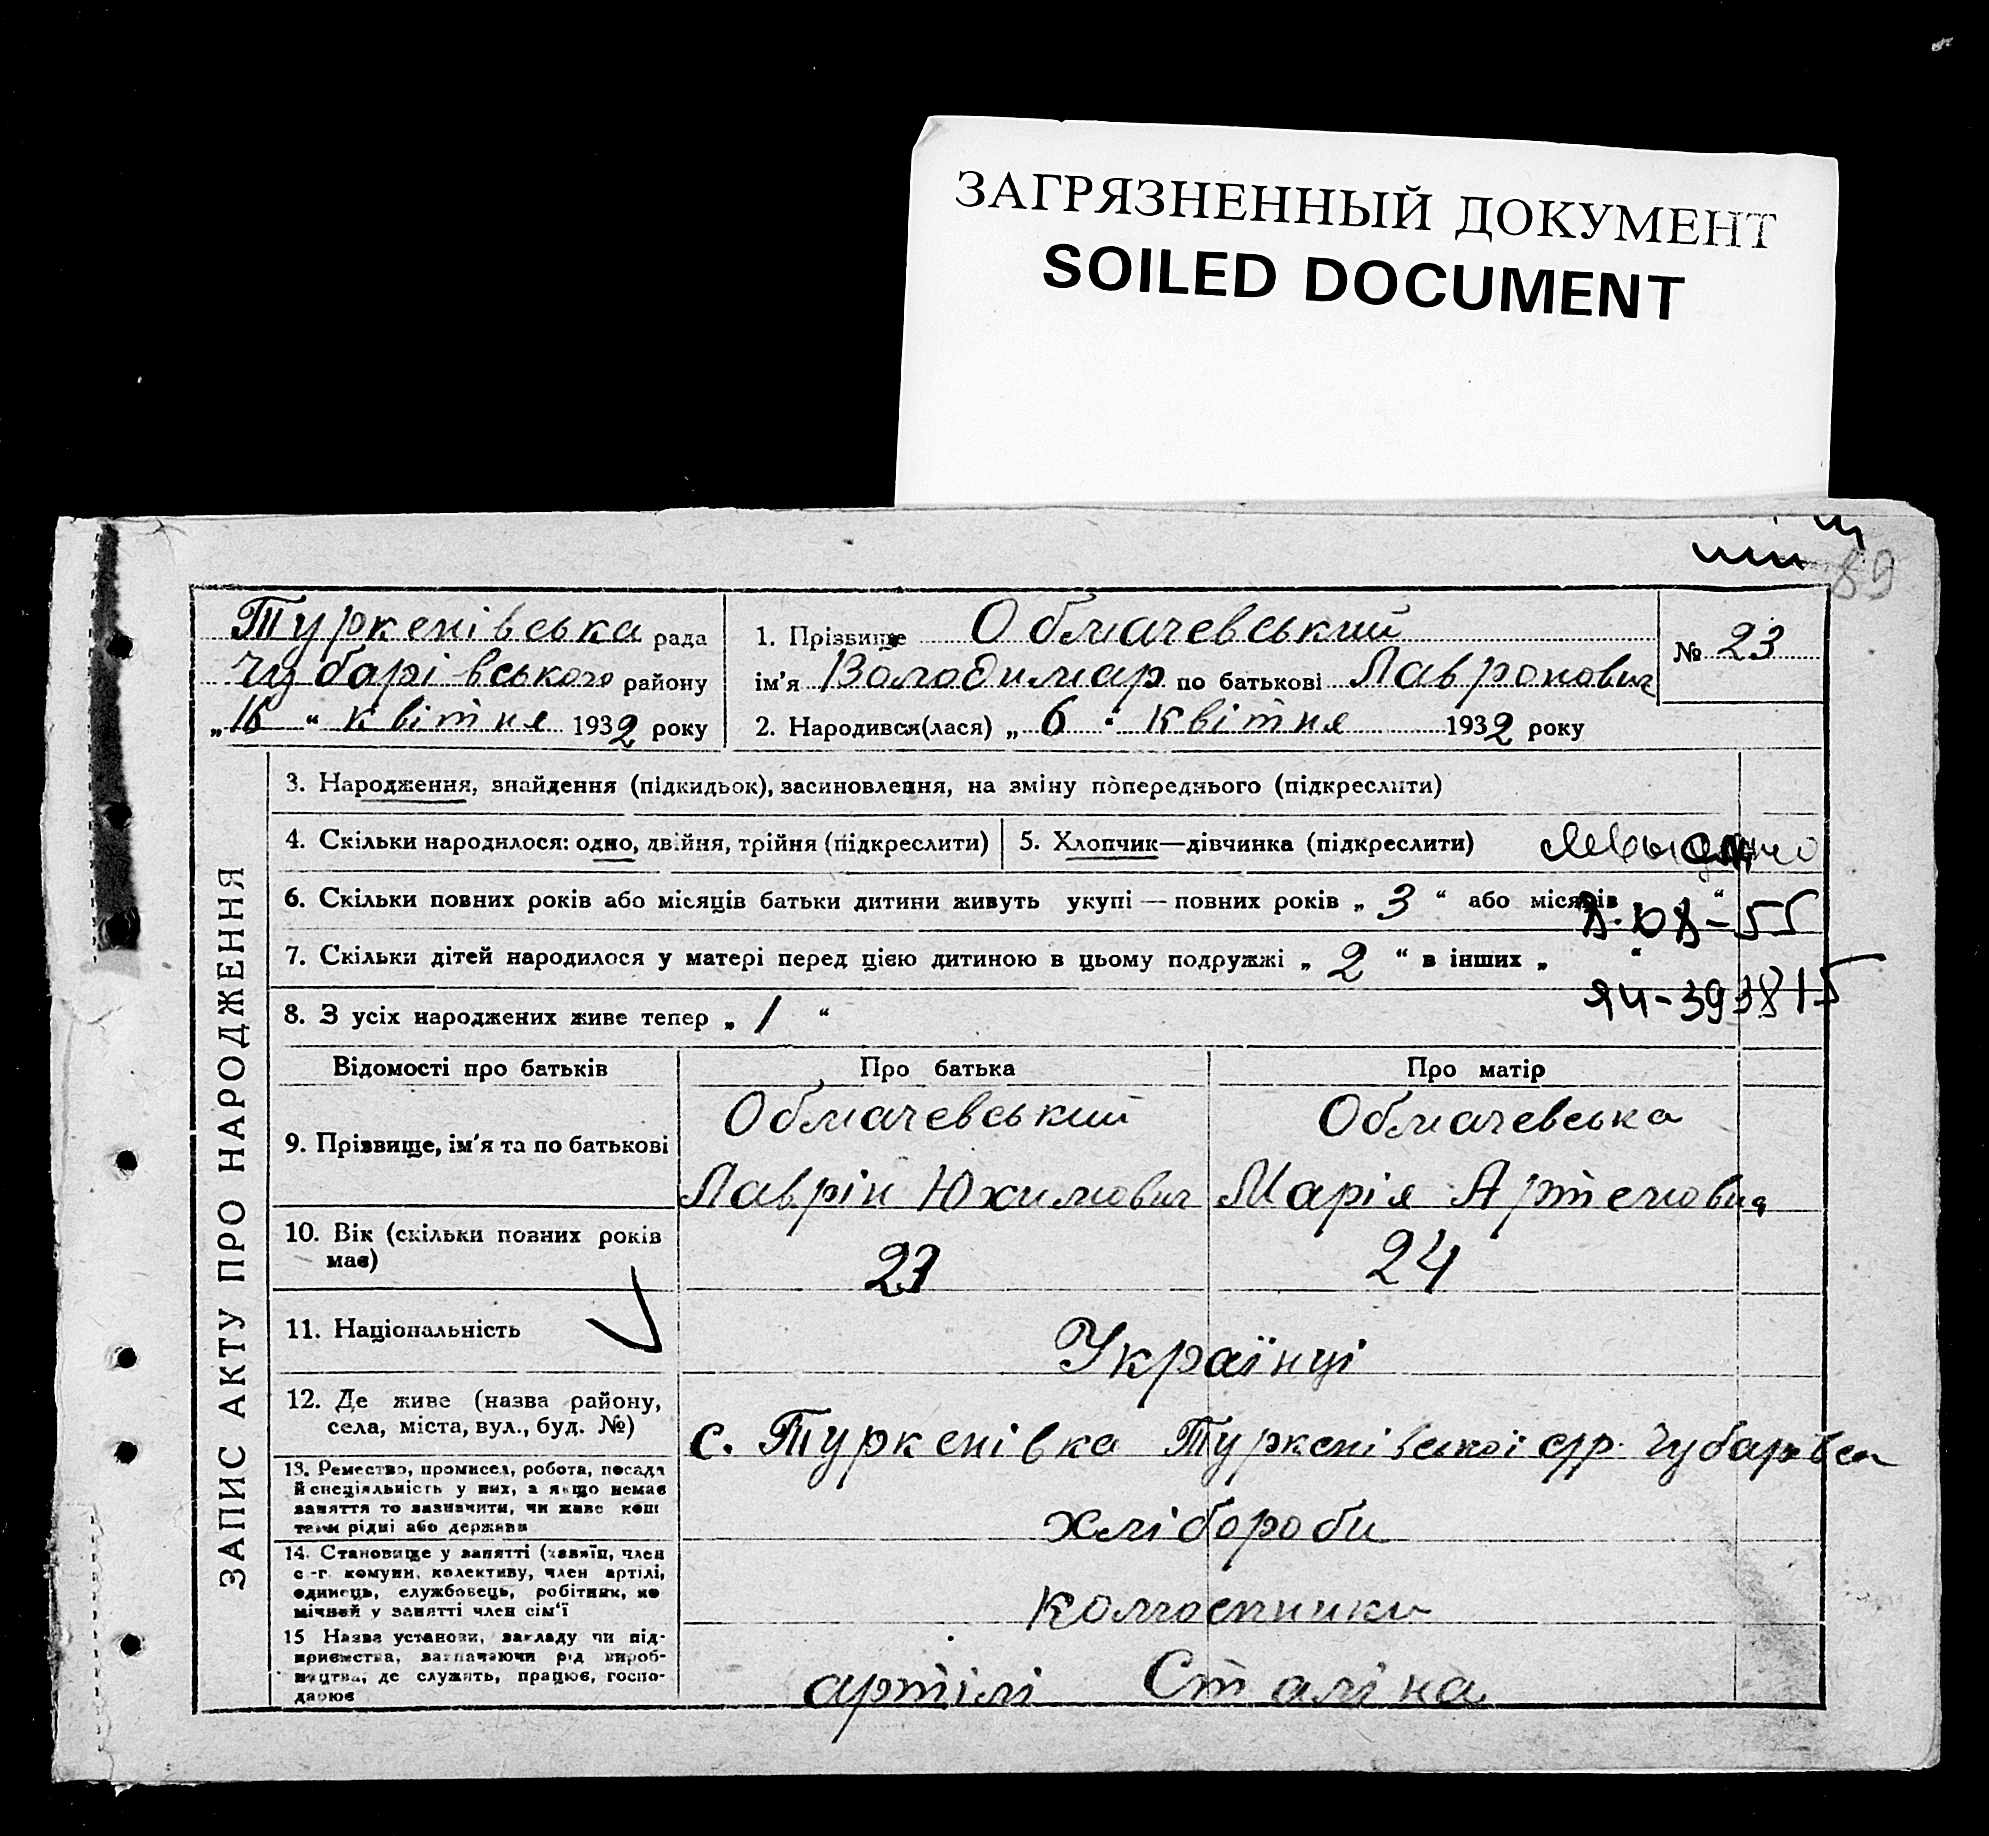 ЗАГРЯЗНЕННЫЙ ДОКУМЕНТ
SOILED DOCUMENT
89
Туркенівська рада
Чубарівського району
„16“ квітня 1932 року
1. Прізвище Облачевський
ім'я Володимар по батькові Лавронович
2. Народився(лася) „6“ квітня 1932 року
№ 23
ЗАПИС АКТУ ПРО НАРОДЖЕННЯ
3. Народження, знайдення (підкидьок), засиновлення, на зміну попереднього (підкреслити)
4. Скільки народилося: одно, двійня, трійня (підкреслити)
5. Хлопчик—дівчинка (підкреслити)
6. Скільки повних років або місяців батьки дитини живуть укупі — повних років „3“ або місяців “
8-08-55
7. Скільки дітей народилося у матері перед цією дитиною в цьому подружжі „2“ в інших „ “
ЯЧ-393815
8. З усіх народжених живе тепер „1“
Відомості про батьків
Про батька
Про матір
9. Прізвище, ім'я та по батькові
Облачевський
Лаврін Юхимович
Облачевська
Марія Артемовна
10. Вік (скільки повних років має)
23
24
11. Національність
Українці
12. Де живе (назва району,
села, міста, вул., буд. №)
с. Туркенівка Туркенівської с/р. Чубарівсь
13. Ремество, промисел, робота, посада
й спеціяльність у них, а якщо немає
заняття то зазначити, чи живе кош
тами рідні або держави
хлібороби
14. Становище у занятті (хазяїн, член
с.-г. комуни, колективу, член артілі,
одинець, службовець, робітник, по
мічний у занятті член сім'ї
колгоспники
15 Назва установи, закладу чи під-
приємства, зазначаючи рід вироб-
ництва, де служить, працює, госпо-
дарює
артілі Сталіна